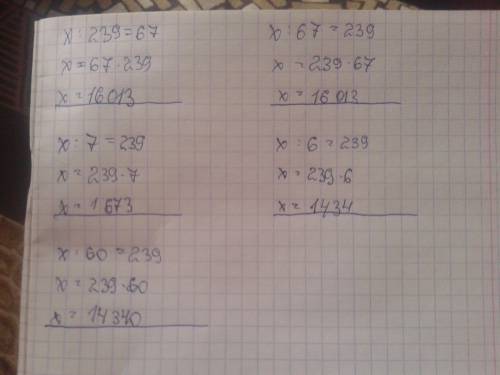 x : 239 = 67
x = 67 · 239
x = 16013
x : 67 = 239
x = 239 · 67
x = 16013
x : 7 = 239
x = 239 · 7
x = 1673
x : 6 = 239
x = 239 · 6
x = 1434
x : 60 = 239
x = 239 · 60
x = 14340